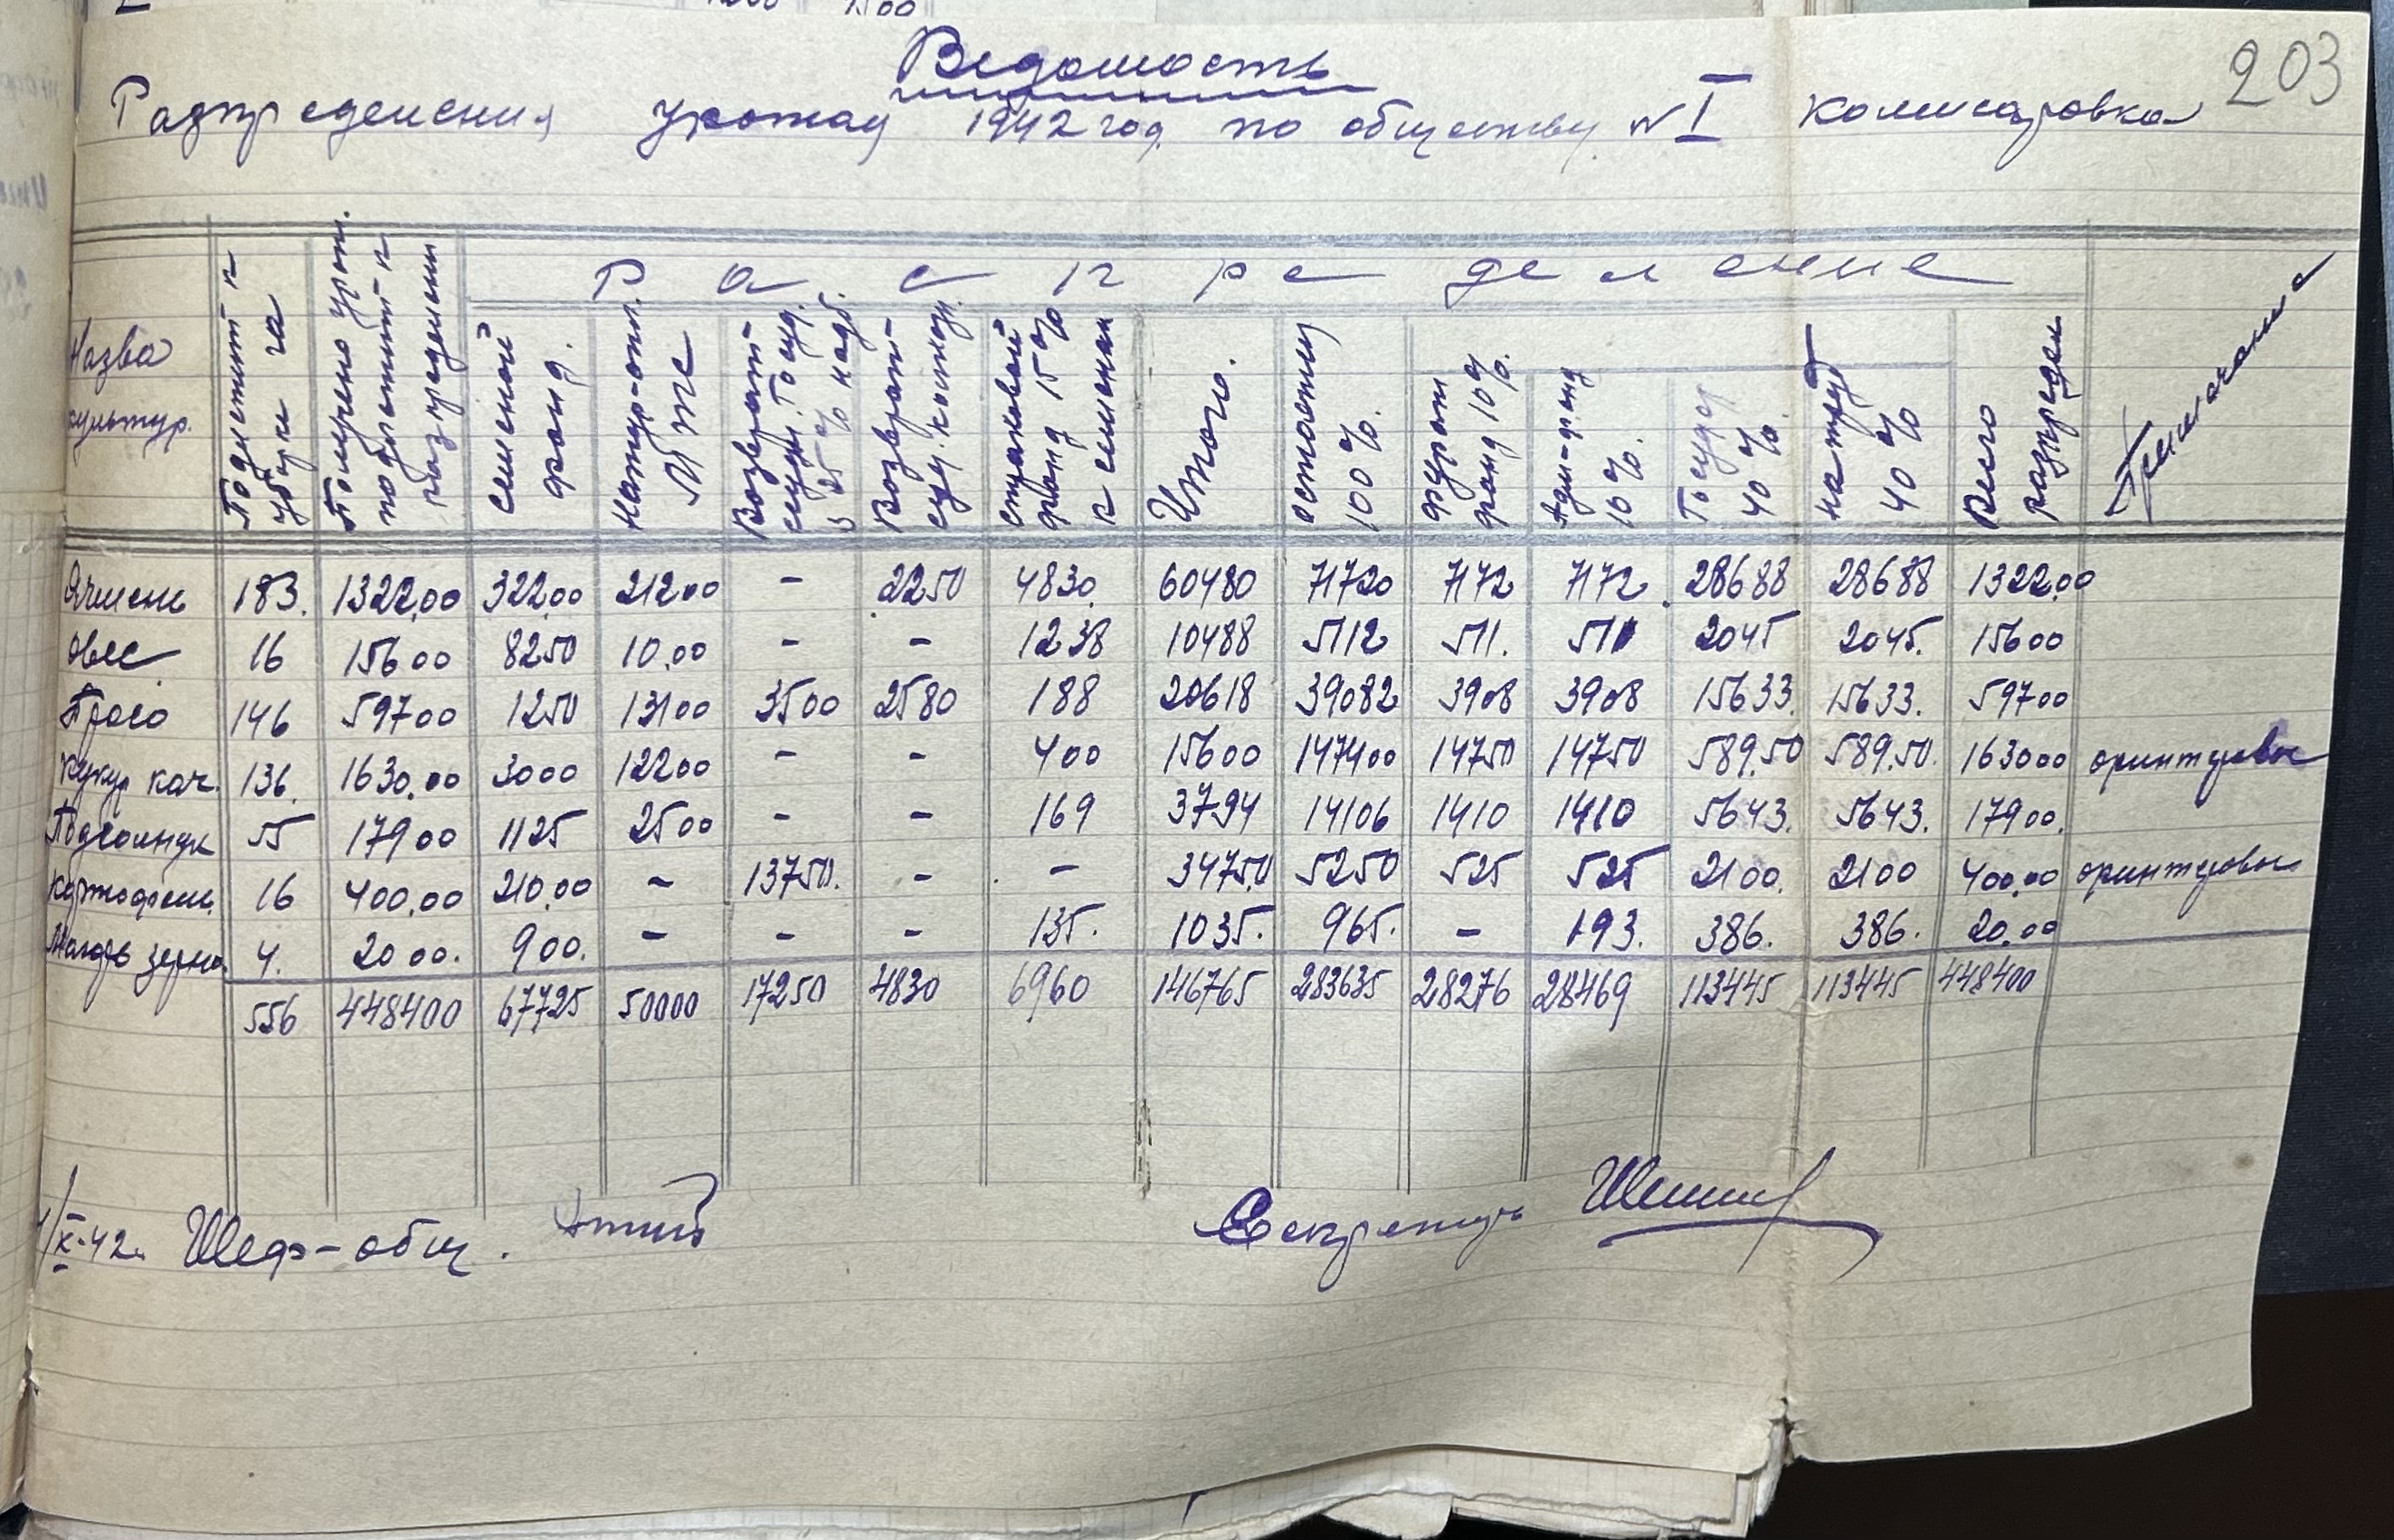 1200 1500
203
Ведомость
Разпределения урожая 1942 год по обществу N I Комисаровка
Назва культур.
Подлежит к уборке га
Получено урож. подлежит к разпределении
Распределение
Семеной фонд.
Натур-опл. МТС
Возврат Госуд. с 25% надб.
Возврат
Страховой фонд 15% к семенам
Итого.
Остаток 100%.
Фураж фонд 10%.
Адм-фонд 10%.
Государ 40%.
На труд 40%
Всего разпредел
Примечание
Ячмень 183. 1322,00 322,00 212,00 - 2250 4830. 60480 71720 7172 7172 28688 28688 1322,00
Овес 16 15600 8250 10.00 - - 1238 10488 5112 511. 511 2045 2045. 15600
Просо 146 59700 1250 13100 3500 2580 188 20618 39082 3908 3908 15633. 15633. 59700
Кукур кач. 136. 1630.00 3000 12200 - - 400 15600 147400 14750 14750 589.50 589.50. 163000 оринтировос
Подсолнук 55 17900 1125 2500 - - 169 3794 14106 1410 1410 5643. 5643. 17900.
Картофель. 16 400.00 210.00 - 13750. - - 34750 5250 525 525 2100. 2100 400,00 оринтировос
зерно. 4. 2000. 900. - - - 135. 1035. 965. - 193. 386. 386. 20.00
556 448400 67725 50000 17250 4830 6960 146765 283635 28276 28469 113445 113445 448400
/X-42г. Шеф-общ. Секретарь